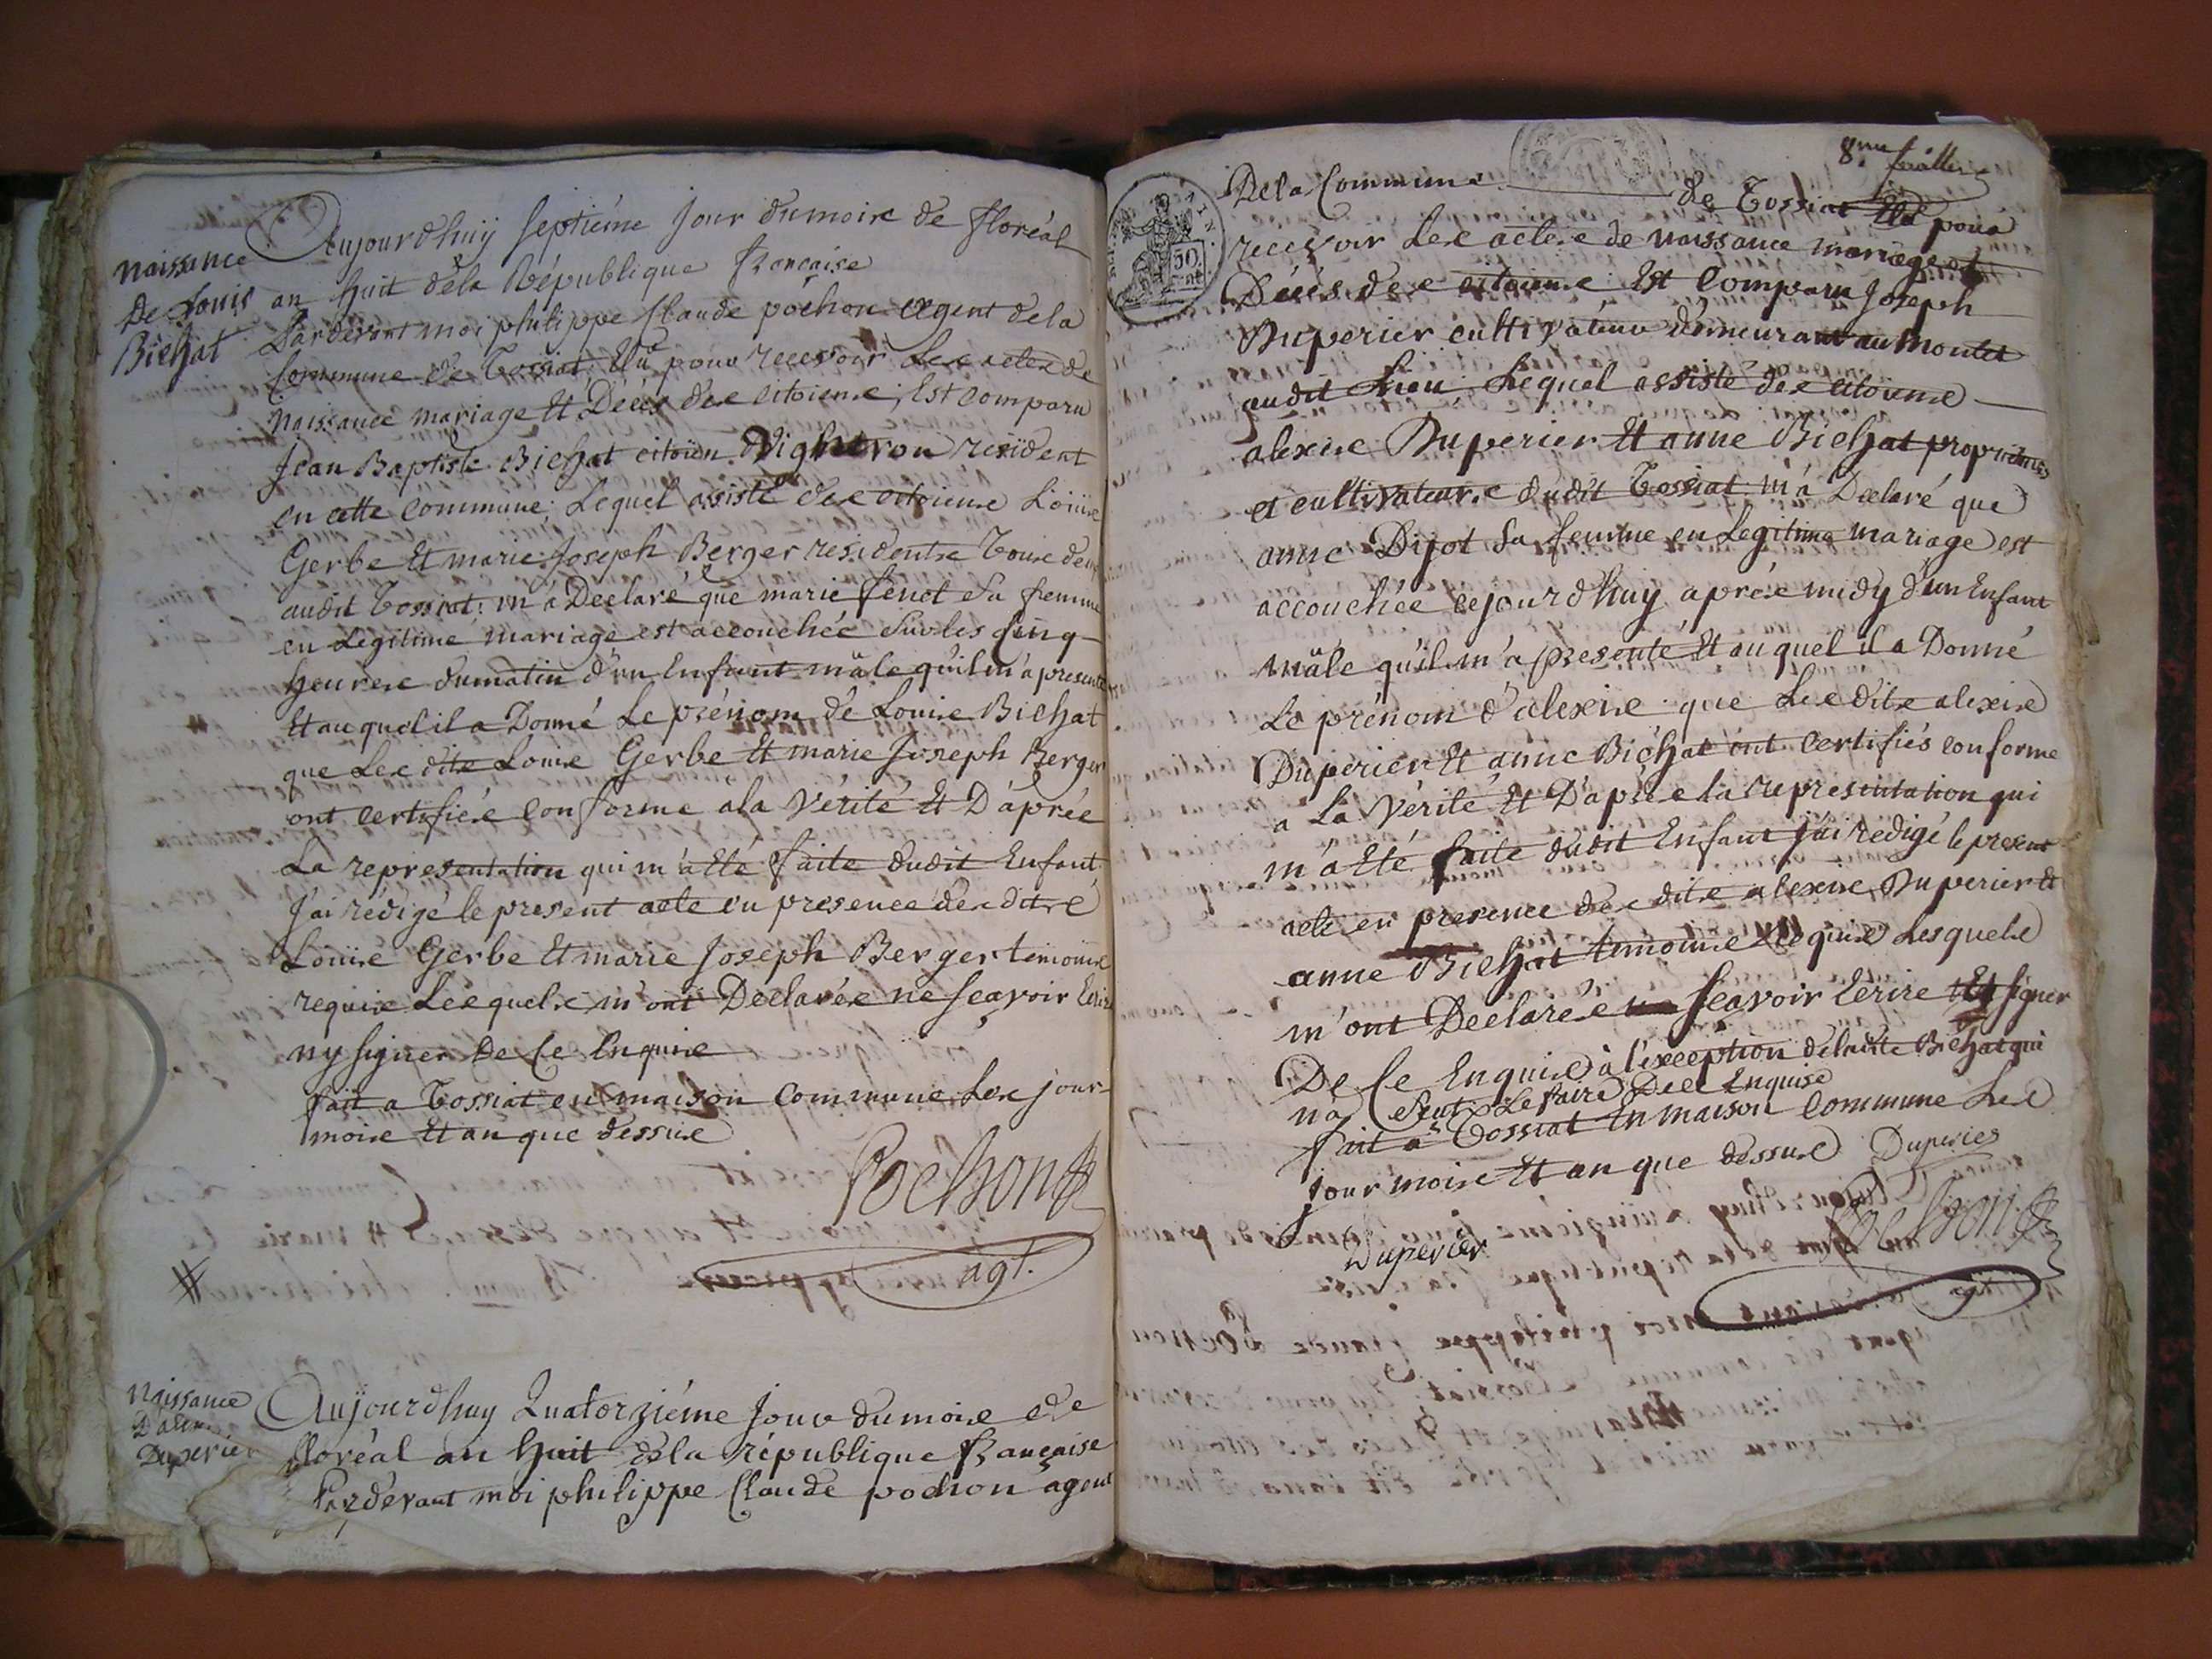 naissance
De Louis
Bichat
Aujourdhuÿ septiéme jour dumois de floréal
an huit déla République francaise
Pardevant moi philippe Claude pochon agent de la
Commune de Tossiat Elu pour recevoir Les actes de
Naissance mariage Et Décés des citoiens, Est comparu
Jean Baptiste Bichat citoien Vigneron resident
en cette commune; Lequel assisté des citoiens Loüis
Gerbe Et marie Joseph Berger residents Tous deux
audit Tossiat, m'a Déclaré que marie fenot Sa femme
en Legitime mariage est accouchée Sur les Cinq
heures dumatin d'un Enfant mâle qu'il m'a presenté
Et auquel il a Donné Le prénom de Louis Bichat
que Les dits Louis Gerbe Et marie Joseph Berger
ont certifiés conforme ala Vérité Et D'áprés
La representation qui m'a Eté faite dudit Enfant
J'ai rédigé le present acte en presence des dits
Loüis Gerbe Et marie Joseph Berger temoins
requis Lesquels m'ont Déclarés ne Scavoir Ecrire
ny signer De Ce Enquis
fait a Tossiat en maison Commune Les jour
mois Et an que dessus
Pochon
agt.
naissance
D'alexis
Duperier
Aujourdhuy Quatorziéme Jour dumois de
floréal an huit déla république francaise
Pardevant moi philippe Claude pochon agent
8me feuillet
De la Commune de Tossiat Elu pour
recevoir Les actes de naissance mariage et
Décés des citoiens Est Comparu Joseph
Duperier cultivateur demeurant au Montet
audit Lieu Lequel assisté des citoiens
alexis Duperier Et anne Bichat proprietaires
et cultivateurs dudit Tossiat m'a Declaré que
anne Dijot Sa femme en Legitime mariage est
accouchée cejourdhuy aprés midy d'un Enfant
mâle qu'il m'a presenté Et auquel il a Donné
Le prénom d'alexis que Les dits alexis
Duperier Et anne Bichat ont Certifiés conforme
a La Vérité Et D'aprés la representation qui
m'a Eté faite dudit Enfant j'ai redigé le present
acte en presence des dits alexis Duperier Et
anne Bichat temoins Requis Lesquels
m'ont Declarés Scavoir Ecrire Et signer
De Ce Enquis à l'exception deladite Bichat qui
na Scut Le faire Dece Enquise
fait a Tossiat En maison Commune Les
jour mois Et an que dessus Duperies
Duperier
Pochon
agt